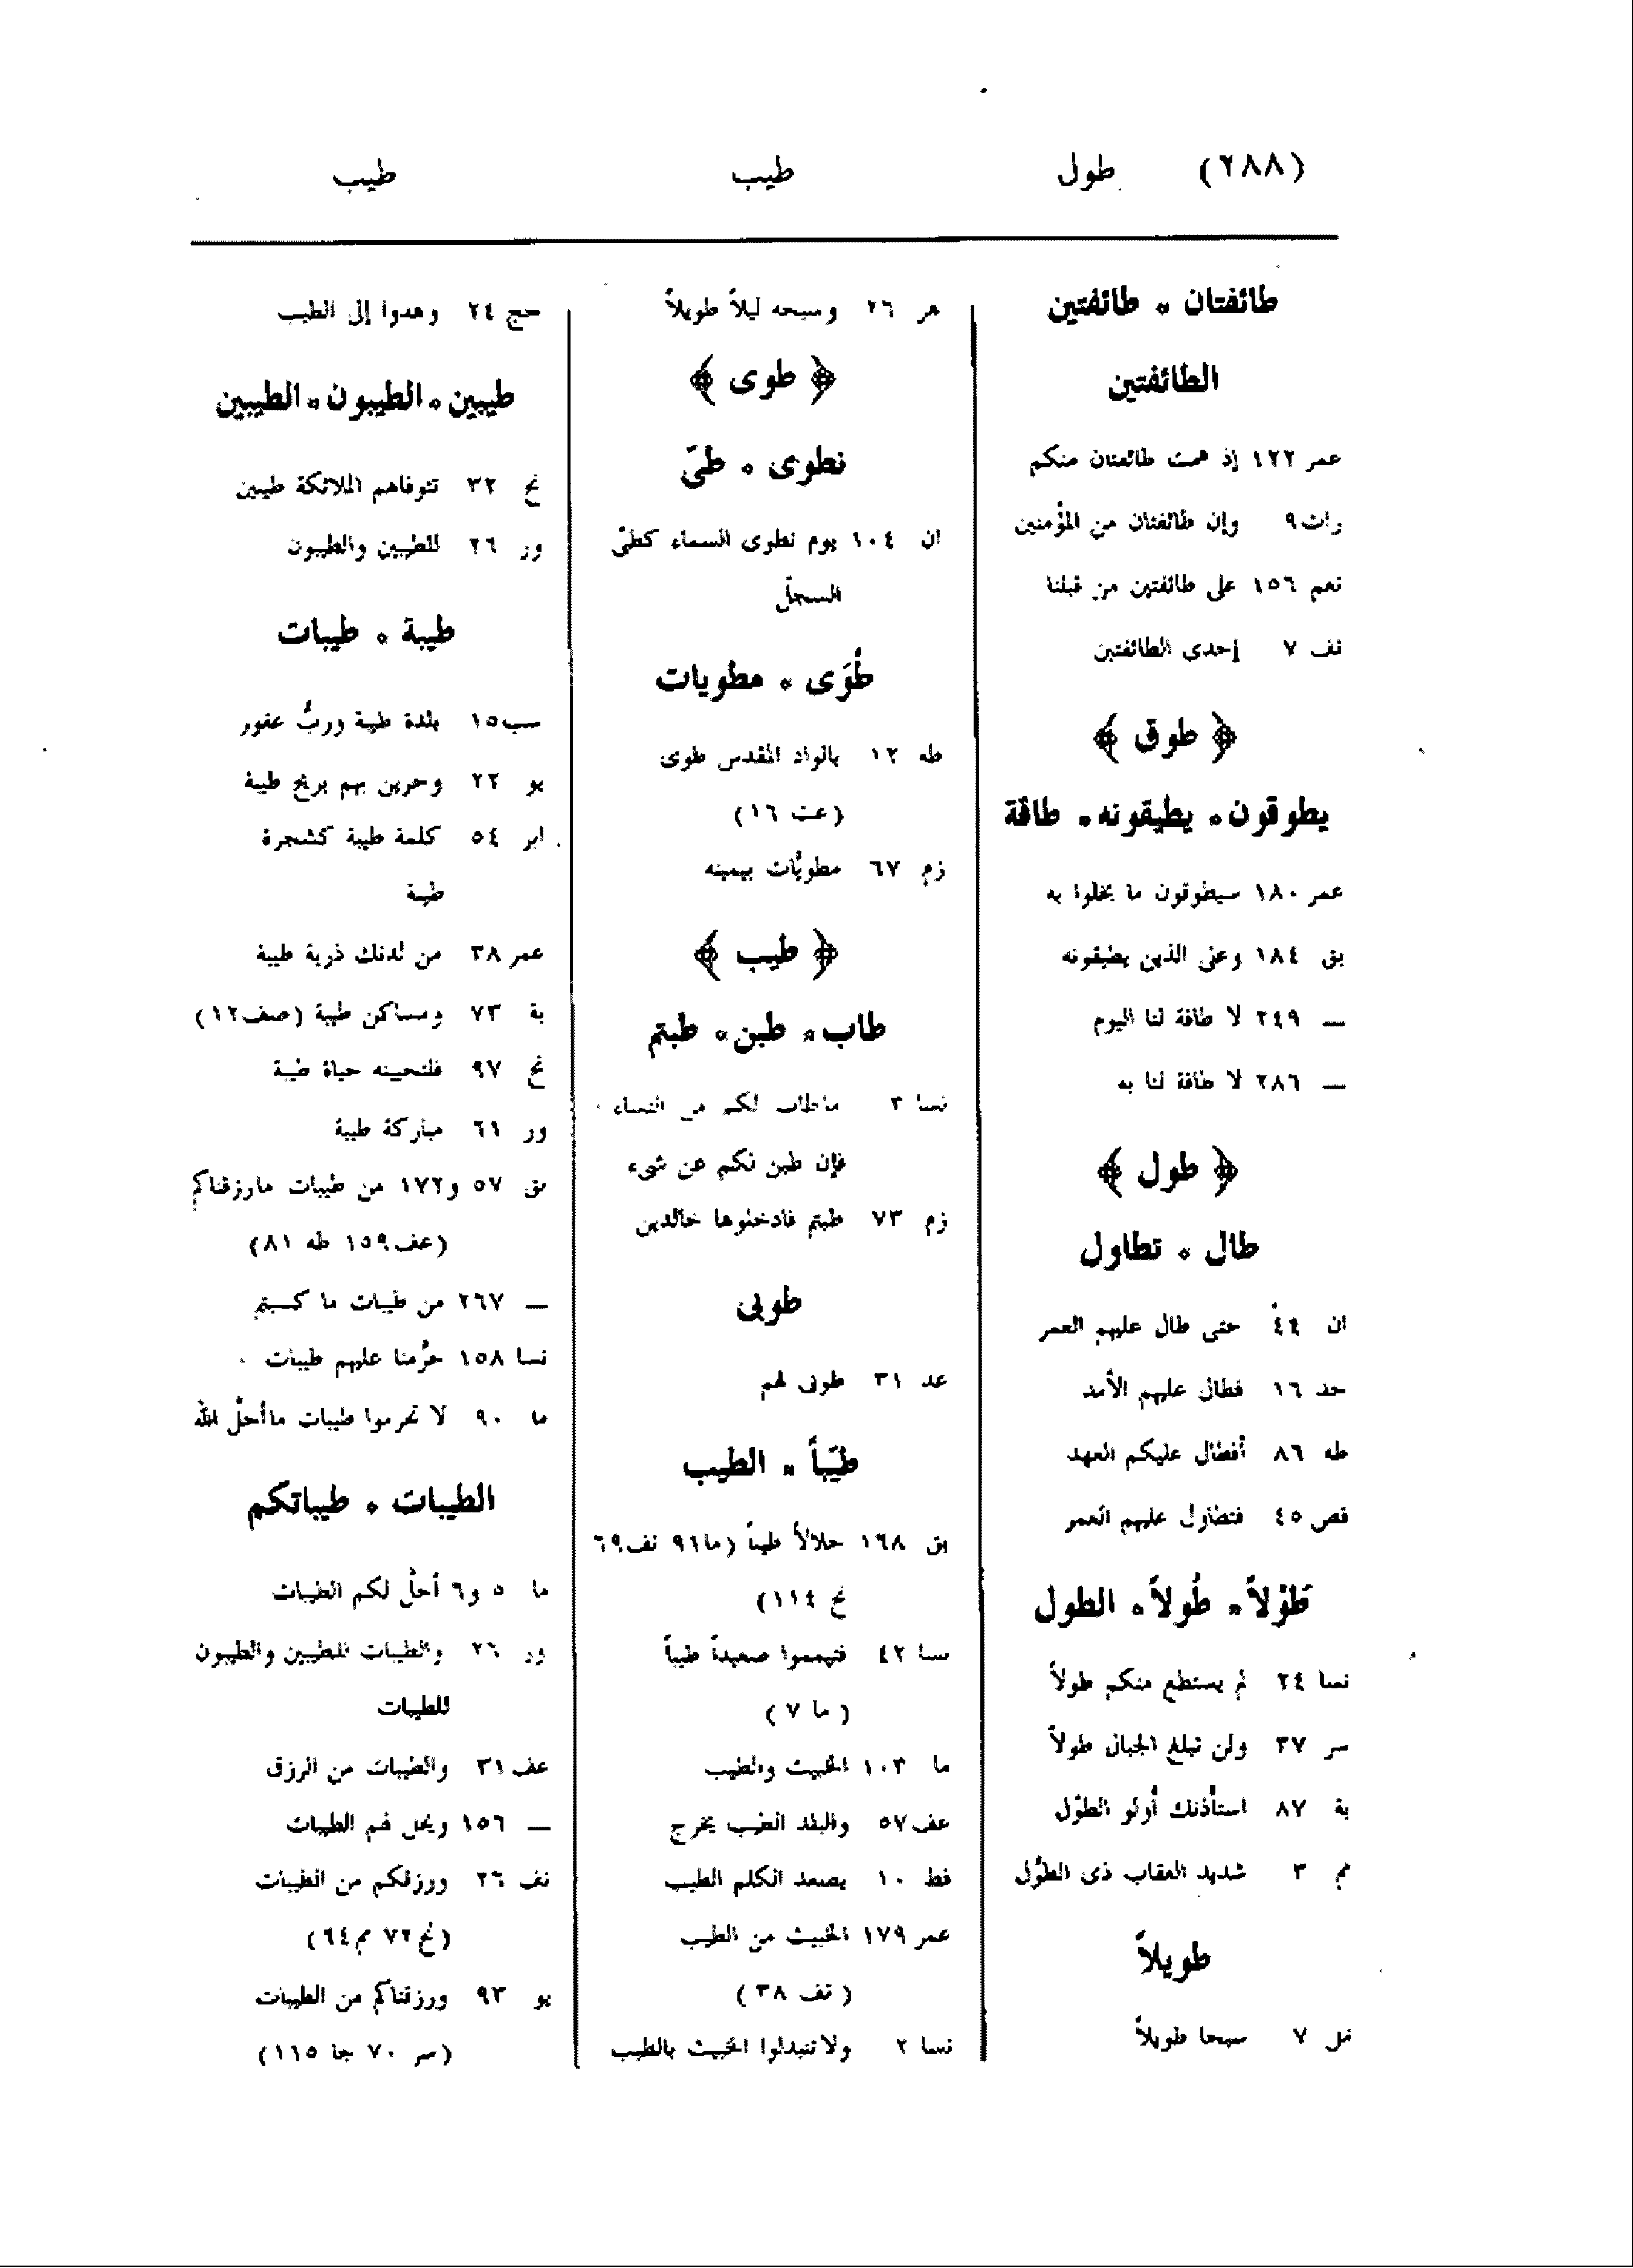 (٢٨٨) طول طيب طيب
طائفتان ۰ طائفتين
الطائفتين
عمر ١٢٢ إذ همت طائفتان منكم
رات ٩ وإن طائفتان من المؤمنين
نعم ١٥٦ على طائفتين من قبلنا
نف ٧ إحدى الطائفتين
﴿ طوق ﴾
يطوقون ۰ يطيقونه ۰ طاقة
عمر ١٨٠ سيطوقون ما بخلوا به
بق ١٨٤ وعلى الذين يطيقونه
— ٢٤٩ لا طاقة لنا اليوم
— ٢٨٦ لا طاقة لنا به
﴿ طول ﴾
طال ۰ تطاول
ان ٤٤ حتى طال عليهم العمر
حد ١٦ فطال عليهم الأمد
طه ٨٦ أفطال عليكم العهد
قص ٤٥ فتطاول عليهم العمر
طَوْلاً ۰ طُولاً ۰ الطول
نسا ٢٤ لم يستطع منكم طولاً
سر ٣٧ ولن تبلغ الجبال طولاً
بة ٨٧ استأذنك أولو الطوْل
مم ٣ شديد العقاب ذى الطوْل
طويلاً
مل ٧ سبحا طويلاً
هر ٢٦ وسبحه ليلاً طويلاً
﴿ طوى ﴾
نطوى ۰ طىّ
ان ١٠٤ يوم نطوى السماء كطىّ
السجلّ
طُوَى ۰ مطويات
طه ١٢ بالواد المقدس طوى
(عت ١٦)
زم ٦٧ مطويَّات بيمينه
﴿ طيب ﴾
طاب ۰ طبن ۰ طبتم
نسا ٣ ماطاب لكم من النساء
فإن طبن لكم عن شىء
زم ٧٣ طبتم فادخلوها خالدين
طوبى
عد ٣١ طوبى لهم
طيّباً ۰ الطيب
بق ١٦٨ حلالاً طيباً (ما٩١ نف٦٩
نح ١١٤)
نسا ٤٢ فتيمموا صعيداً طيباً
(ما ٧)
ما ١٠٣ الخبيث والطيب
عف ٥٧ والبلد الطيب يخرج
فط ١٠ يصعد الكلم الطيب
عمر ١٧٩ الخبيث من الطيب
(نف ٣٨)
نسا ٢ ولا تتبدلوا الخبيث بالطيب
حج ٢٤ وهدوا إلى الطيب
طيبين ۰ الطيبون ۰ الطيبين
نح ٣٢ تتوفاهم الملائكة طيبين
ور ٢٦ للطيبين والطيبون
طيبة ۰ طيبات
سب ١٥ بلدة طيبة وربٌّ غفور
يو ٢٢ وجرين بهم بريح طيبة
ابر ٥٤ كلمة طيبة كشجرة
طيبة
عمر ٣٨ من لدنك ذرية طيبة
بة ٧٣ ومساكن طيبة (صف١٢)
نح ٩٧ فلنحيينه حياة طيبة
ور ٦١ مباركة طيبة
بق ٥٧ و١٧٢ من طيبات مارزقناكم
(عف١٥٩ طه ٨١)
— ٢٦٧ من طيبات ما كسبتم
نسا ١٥٨ حرَّمنا عليهم طيبات
ما ٩٠ لا تحرموا طيبات ما أحلَّ الله
الطيبات ۰ طيباتكم
ما ٥ و٦ أحلَّ لكم الطيبات
ور ٢٦ والطيبات للطيبين والطيبون
للطيبات
عف ٣١ والطيبات من الرزق
— ١٥٦ ويحل لهم الطيبات
نف ٢٦ ورزقكم من الطيبات
(نح ٧٢ مم ٦٤)
يو ٩٣ ورزقناكم من الطيبات
(سر ٧٠ جا ١١٥)